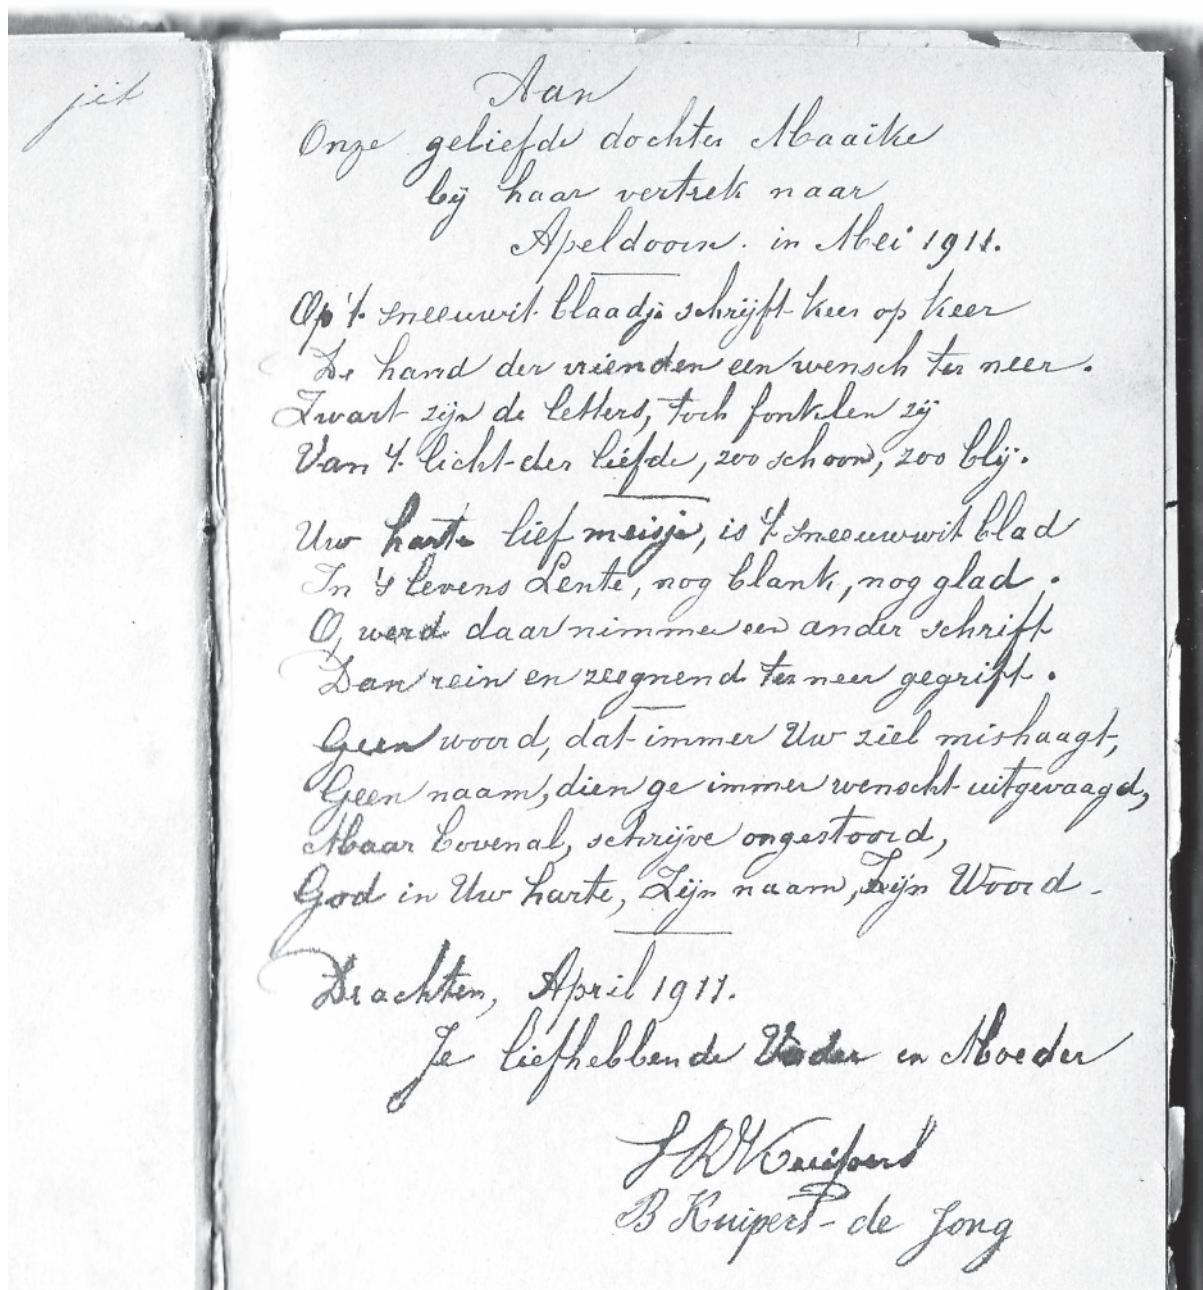 jet
Aan
Onze geliefde dochter Maaike
bij haar vertrek naar
Apeldoorn. in Mei 1911.
Op 't sneeuwit blaadje schrijft keer op keer
De hand der vrienden een wensch ter neer.
Zwart zijn de letters, toch fonklen zij
Van 't licht der liefde, zoo schoon, zoo blij.
Uw harte lief meisje, is 't sneeuwwit blad
In 's levens Lente, nog blank, nog glad.
O, werd daar nimmer een ander schrift
Dan rein en zeegnend ter neer gegrift.
Geen woord, dat immer Uw ziel mishaagt,
Geen naam, dien ge immer wenscht uitgevaagd,
Maar bovenal, schrijve ongestoord,
God in Uw harte, Zijn naam, Zijn Woord.
Drachten, April 1911.
Je liefhebbende Vader en Moeder
Kuipers
B Kuipers - de Jong